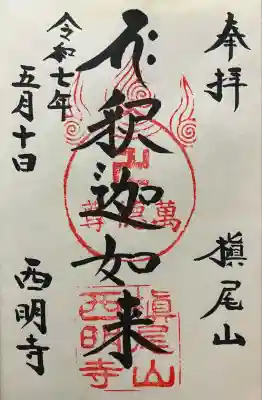 奉拝
槇尾山
釈迦如来
萬德尊
槇尾山
西明寺
令和七年
五月十日
西明寺